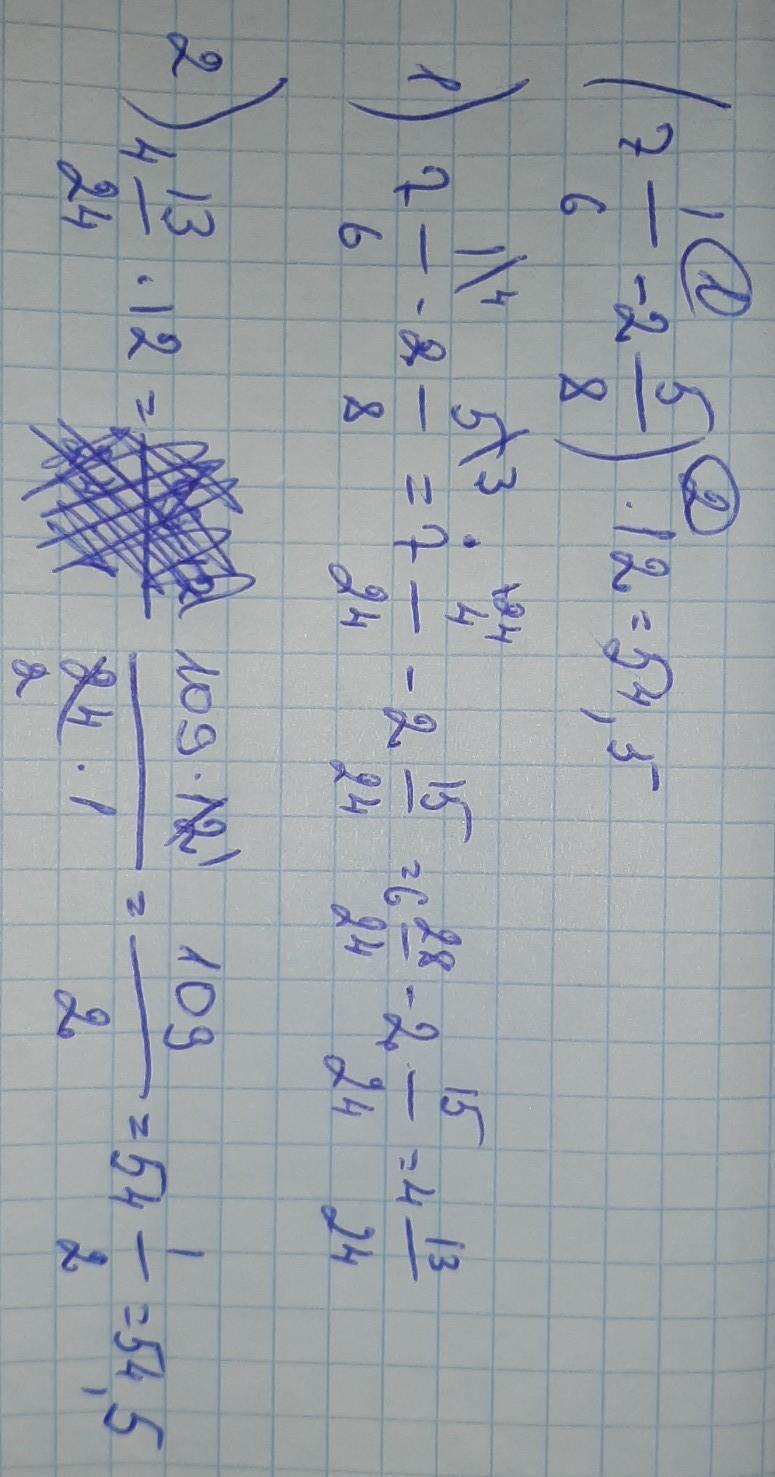 (7 1/6 - 2 5/8) · 12 = 54,5
1) 7 1\4/6 - 2 5\3/8 = 7 4/24 - 2 15/24 = 6 28/24 - 2 15/24 = 4 13/24
2) 4 13/24 · 12 = 109 · 12/24 · 1 = 109/2 = 54 1/2 = 54,5